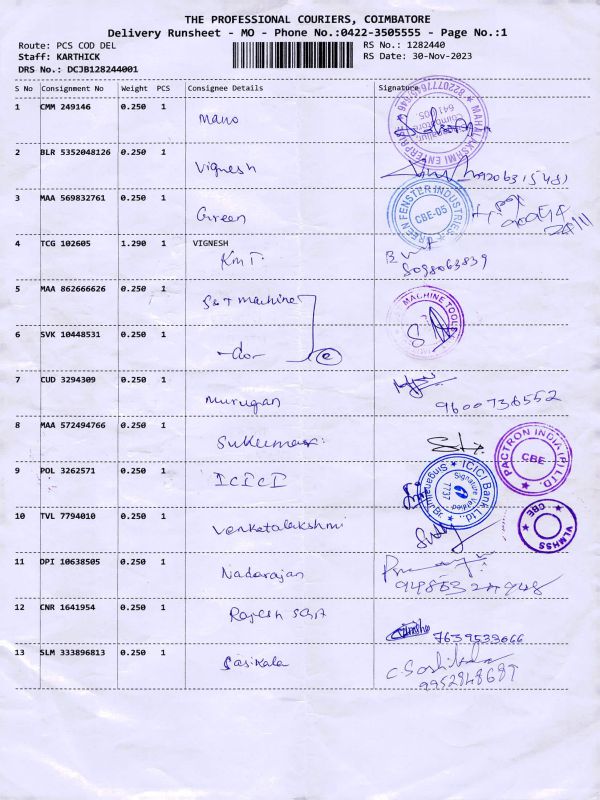 THE PROFESSIONAL COURIERS, COIMBATORE
Delivery Runsheet - MO - Phone No.:0422-3505555 - Page No.:1
Route: PCS COD DEL
RS No.: 1282440
Staff: KARTHICK
RS Date: 30-Nov-2023
DRS No.: DCJB128244001
S No Consignment No Weight PCS Consignee Details Signature
1 CMM 249146 0.250 1 Mano
MAHALAKSHMI ENTERPRISE
2 BLR 5352048126 0.250 1 Vignesh
3 MAA 569832761 0.250 1 Green
GREEN FENSTER INDUSTRIES
CBE-05
4 TCG 102605 1.290 1 VIGNESH
KMT. 8098063839
5 MAA 862666626 0.250 1 S&T machine
MACHINE TOOLS
6 SVK 10448531 0.250 1 -do-
7 CUD 3294309 0.250 1 Murugan 9600736552
8 MAA 572494766 0.250 1 Sukumar
PACTRON INDIA (P) LTD.
CBE
9 POL 3262571 0.250 1 ICICI
ICICI Bank Ltd.
Signature Verified
7737
10 TVL 7794010 0.250 1 Venkatalakshmi
VLMHSS
CBE
11 DPI 10638505 0.250 1 Nadarajan
12 CNR 1641954 0.250 1 Rajesh 7639533666
13 SLM 333896813 0.250 1 Sasikala
9952848687